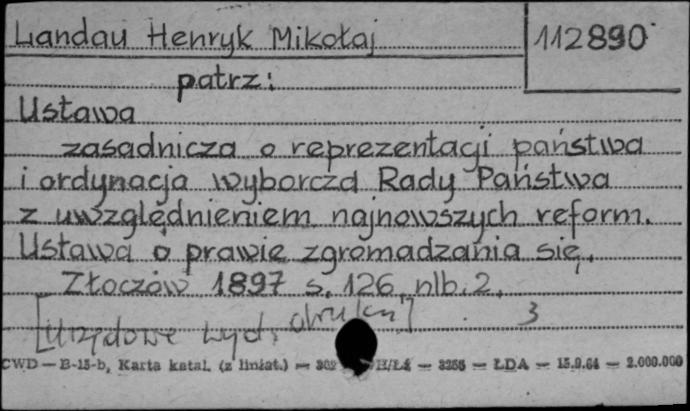 Landau Henryk Mikołaj 112890
patrz:
Ustawa
zasadnicza o reprezentacji państwa
i ordynacja wyborcza Rady Państwa
z uwzględnieniem najnowszych reform.
Ustawa o prawie zgromadzania się.
Złoczów 1897 s. 126, nlb. 2.
[Urzędowe wyd. druku] 3
CWD — B-15-b, Karta katal. (z liniat.) — 302 H/Łż — 3255 — ŁDA — 15.9.64 — 2.000.000